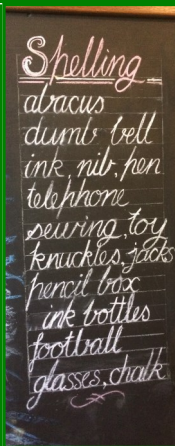 Spelling
abacus
dumb bell
ink, nib, pen
telephone
sewing, toy
knuckles, jacks
pencil box
ink bottles
football
glasses, chalk